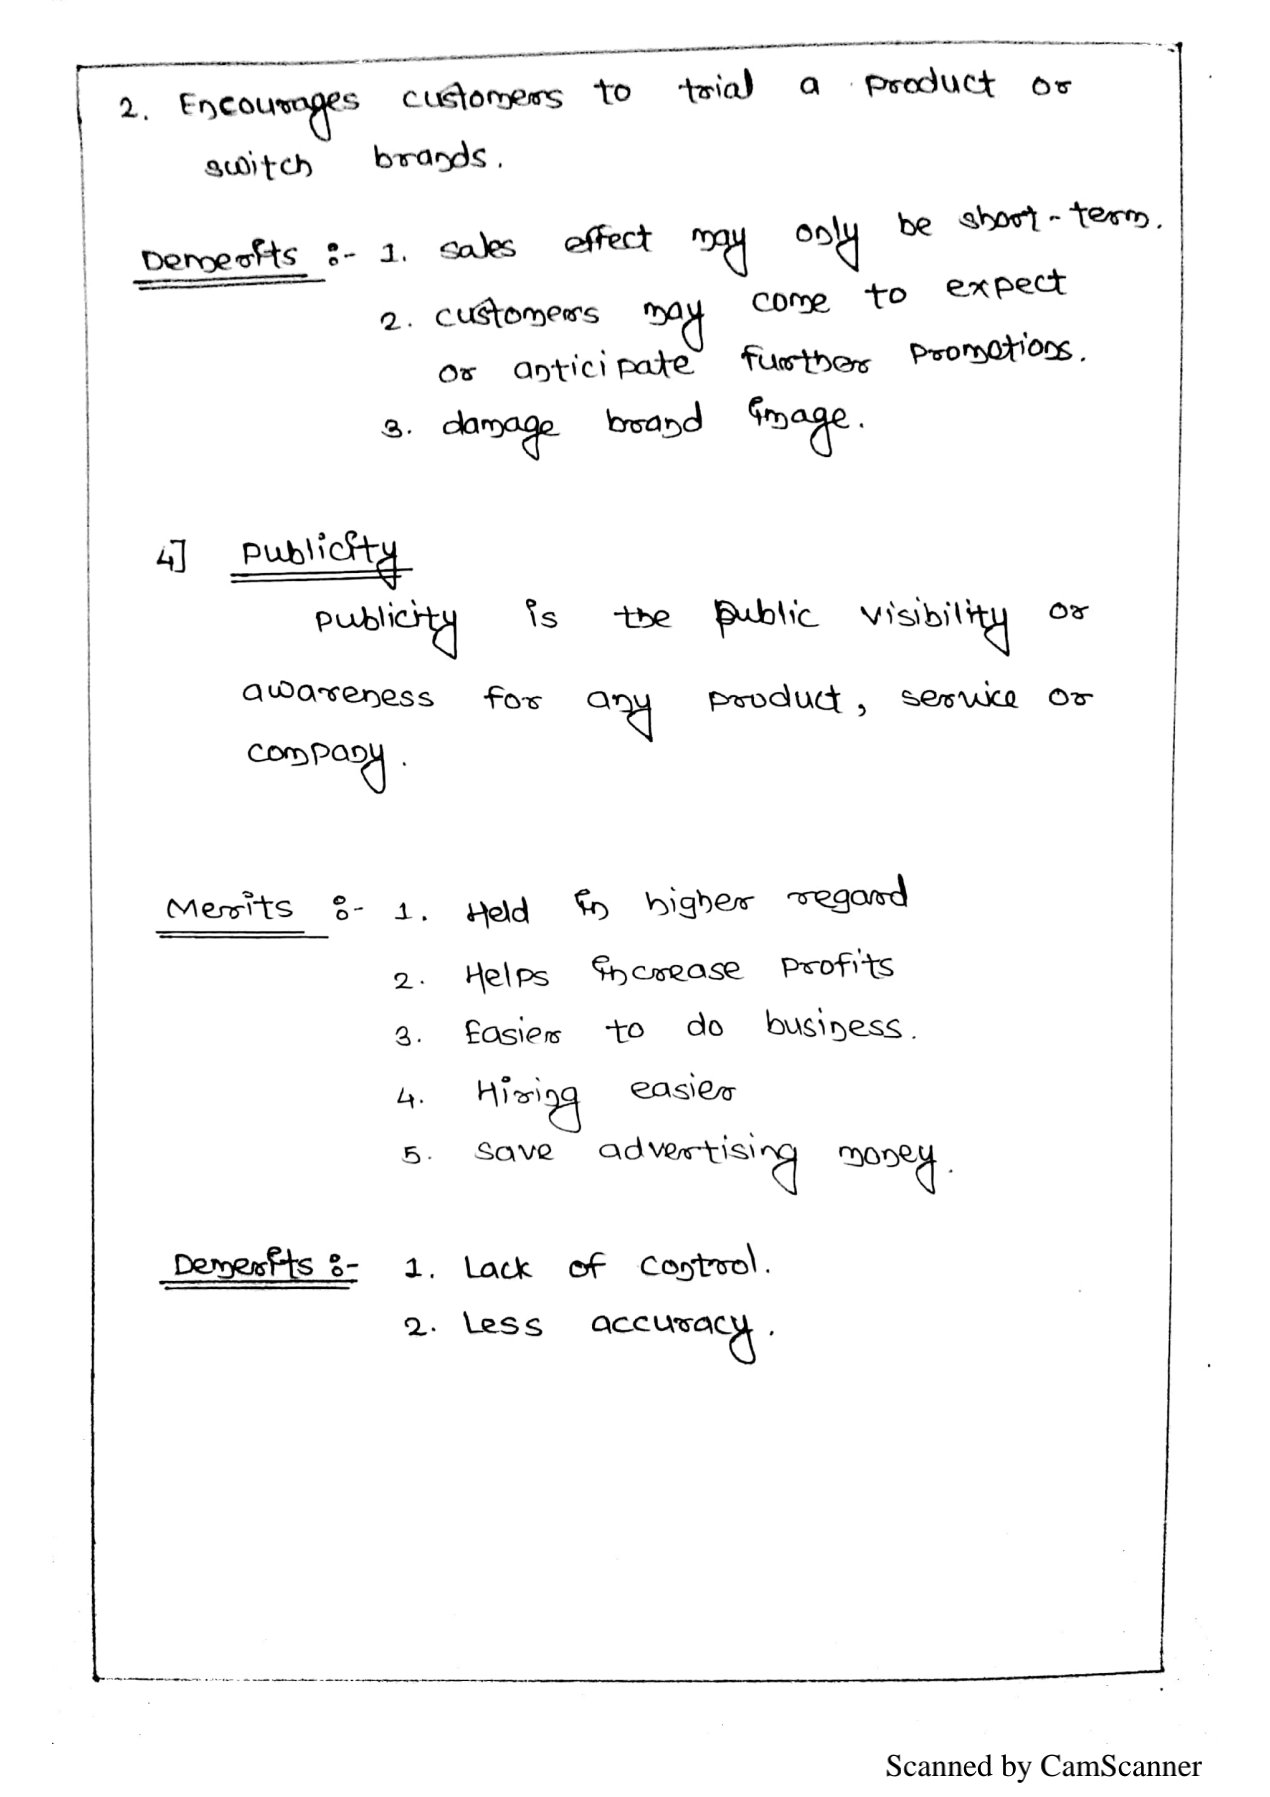 2. Encourages customers to trial a product or
switch brands.
Demerits :- 1. sales effect may only be short-term.
2. customers may come to expect
or anticipate further promotions.
3. damage brand image.
4] Publicity
Publicity is the public visibility or
awareness for any product, service or
company.
Merits :- 1. Held in higher regard
2. Helps increase profits
3. Easier to do business.
4. Hiring easier
5. save advertising money.
Demerits :- 1. Lack of control.
2. Less accuracy.
Scanned by CamScanner